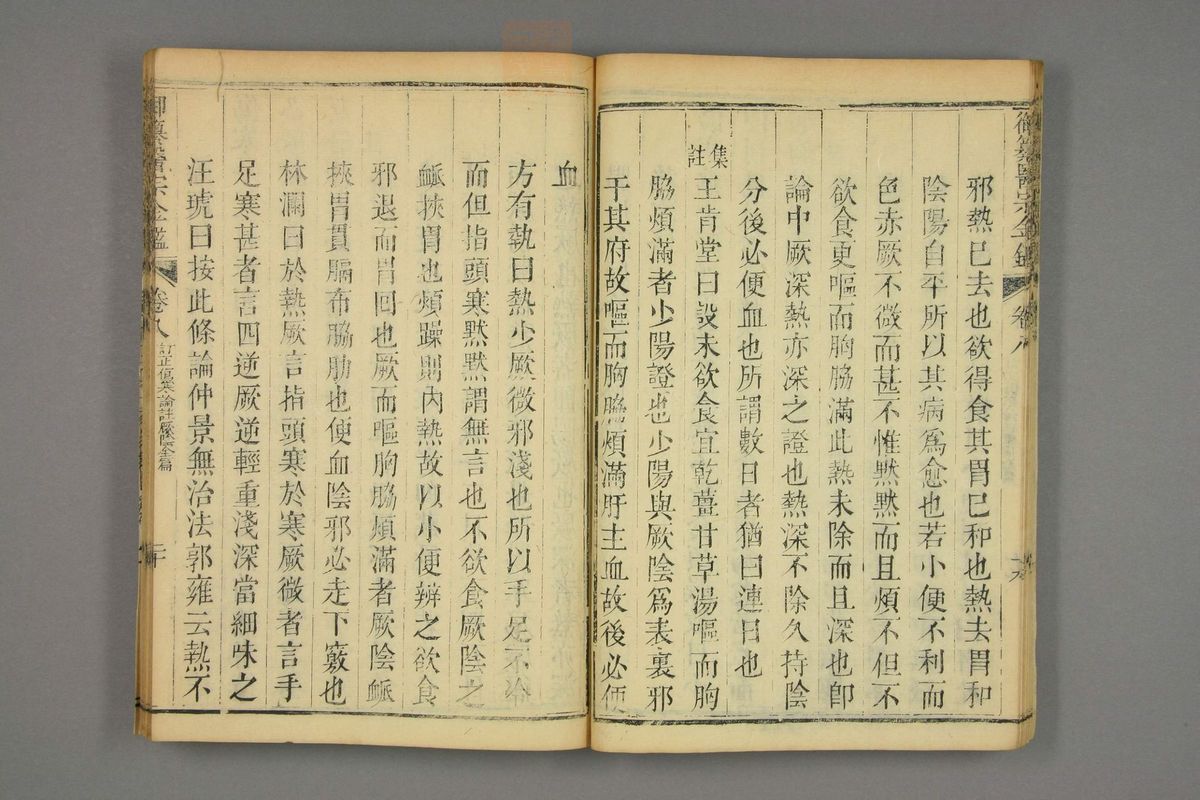 御纂醫宗金鑑 卷八
邪熱已去也欲得食其胃已和也熱去胃和
陰陽自平所以其病爲愈也若小便不利而
色赤厥不微而甚不惟黙黙而且煩不但不
欲食更嘔而胸脇滿此熱未除而且深也卽
論中厥深熱亦深之證也熱深不除久持陰
分後必便血也所謂數日者猶曰連日也
集註
王肯堂曰設未欲食宜乾薑甘草湯嘔而胸
脇煩滿者少陽證也少陽與厥陰爲表裏邪
干其府故嘔而胸脇煩滿肝主血故後必便
血
方有執曰熱少厥微邪淺也所以手足不冷
而但指頭寒黙黙謂無言也不欲食厥陰之
脈挾胃也煩躁則內熱故以小便辨之欲食
邪退而胃回也厥而嘔胸脇煩滿者厥陰脈
挾胃貫膈布脇肋也便血陰邪必走下竅也
林瀾曰於熱厥言指頭寒於寒厥微者言手
足寒甚者言四逆厥逆輕重淺深當細味之
汪琥曰按此條論仲景無治法郭雍云熱不
御纂醫宗金鑑 卷八 訂正傷寒論註厥陰全篇 二十